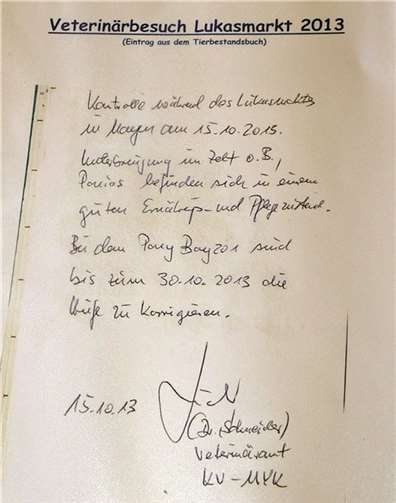 Veterinärbesuch Lukasmarkt 2013
(Eintrag aus dem Tierbestandsbuch)
Kontrolle während des Lukasmarktes
in Mayen am 15.10.2013.
Unterbringung im Zelt o.B.,
Ponies befinden sich in einem
guten Ernährungs- und Pflegezustand.
Bei dem Pony sind
bis zum 30.10.2013 die
Hufe zu korrigieren.
15.10.13
(Dr. Schneider)
Veterinäramt
KV-MYK